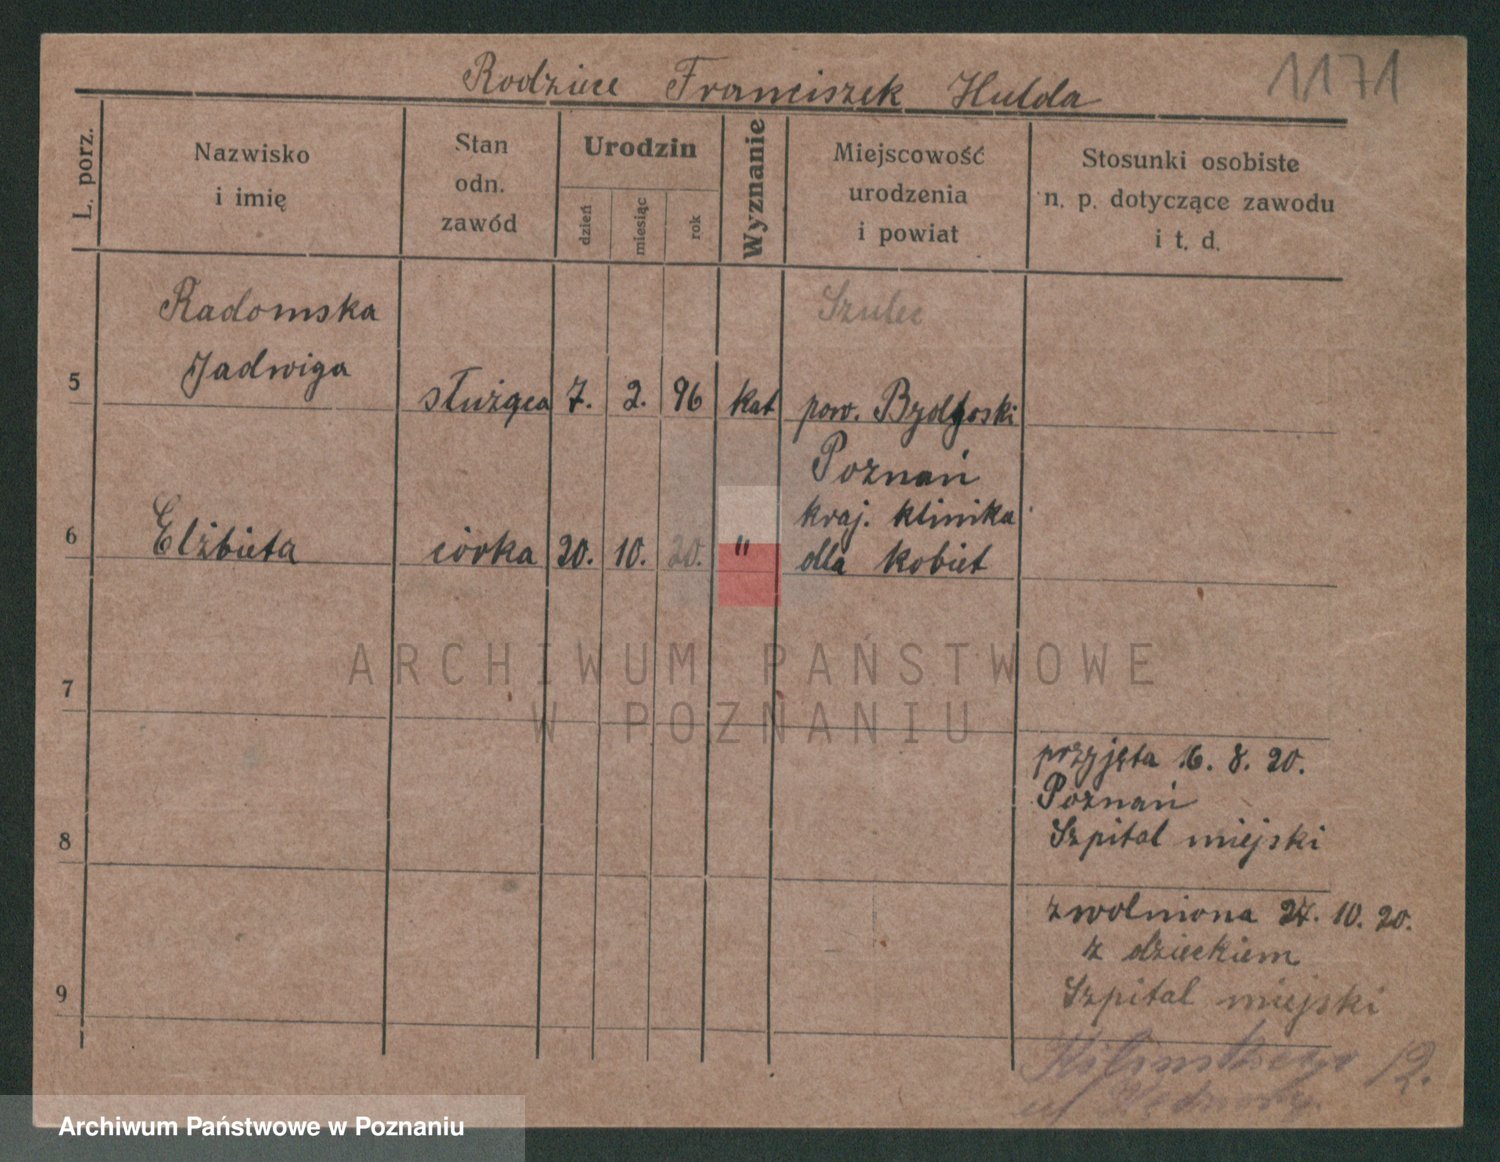 Rodzice Franciszek Hulda
1171
L. porz.
Nazwisko
i imię
Stan
odn.
zawód
Urodzin
dzień
miesiąc
rok
Wyznanie
Miejscowość
urodzenia
i powiat
Stosunki osobiste
n. p. dotyczące zawodu
i t. d.
Radomska
Szulec
Jadwiga
5 służąca 7. 2. 96 kat pow. Bydgoski
Poznań
kraj. klinika
6 Elżbieta córka 20. 10. 20. " dla kobiet
ARCHIWUM PAŃSTWOWE
W POZNANIU
7
przyjęta 16. 8. 20.
Poznań
8 Szpital miejski
zwolniona 27. 10. 20.
z dzieckiem
9 Szpital miejski
12.
ul
Archiwum Państwowe w Poznaniu